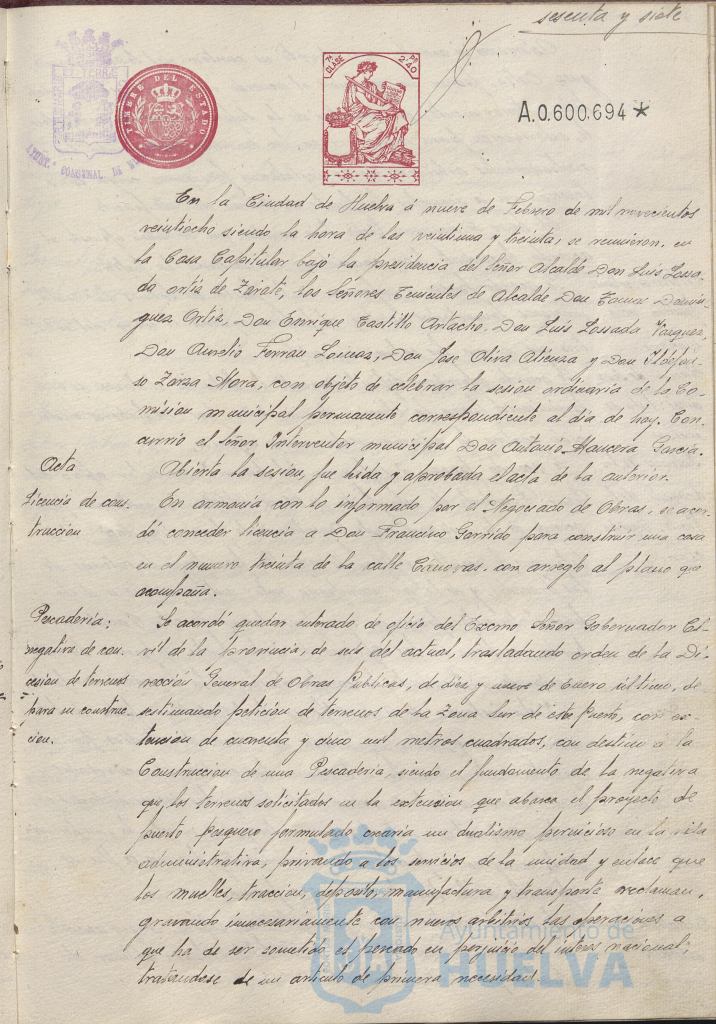 sesenta y siete
TIMBRE DEL ESTADO
7ª CLASE
PS 2'40
A.0.600.694*
En la Ciudad de Huelva á nueve de Febrero de mil novecientos
veintiocho siendo la hora de las veintiuna y treinta, se reunieron, en
la Casa Capitular bajo la presidencia del Señor Alcalde Don Luis Lossa-
da Ortiz de Zárate, los Señores Tenientes de Alcalde Don Tomas Domin-
guez Ortiz, Don Enrique Castillo Artacho, Don Luis Lossada Vazquez,
Don Aurelio Ferran Lomaz, Don Jose Oliva Atienza y Don Ildefon-
so Zarza Mora, con objeto de celebrar la sesion ordinaria de la Co-
mision municipal permanente correspondiente al dia de hoy. Con-
currio el Señor Interventor municipal Don Antonio Mancera Garcia.
Acta
Abierta la sesion, fue leida y aprobada el acta de la anterior.
Licencia de cons-
truccion
En armonia con lo informado por el Negociado de Obras, se acor-
dó conceder licencia a Don Francisco Garrido para construir una casa
en el numero treinta de la calle Cánovas, con arreglo al plano que
acompaña.
Pescaderia:
negativa de con-
cesion de terrenos
para su construc-
cion.
Se acordó quedar enterado de oficio del Excmo Señor Gobernador Ci-
vil de la Provincia, de seis del actual, trasladando orden de la Di-
reccion General de Obras Publicas, de diez y nueve de Enero último, de-
sestimando peticion de terrenos de la Zona Sur de este Puerto, con ex-
tension de cuarenta y cinco mil metros cuadrados, con destino á la
Construccion de una Pescaderia, siendo el fundamento de la negativa
que, los terrenos solicitados en la extension que abarca el proyecto de
puerto pesquero formulado crearia un dualismo pernicioso en la vida
administrativa, privando a los servicios de la unidad y enlace que
los muelles, traccion, deposito, manufactura y transporte reclaman,
gravando innecesariamente con nuevos arbitrios las operaciones a
que ha de ser sometido el pescado en perjuicio del interes nacional,
tratandose de un articulo de primera necesidad.
Ayuntamiento de
HUELVA